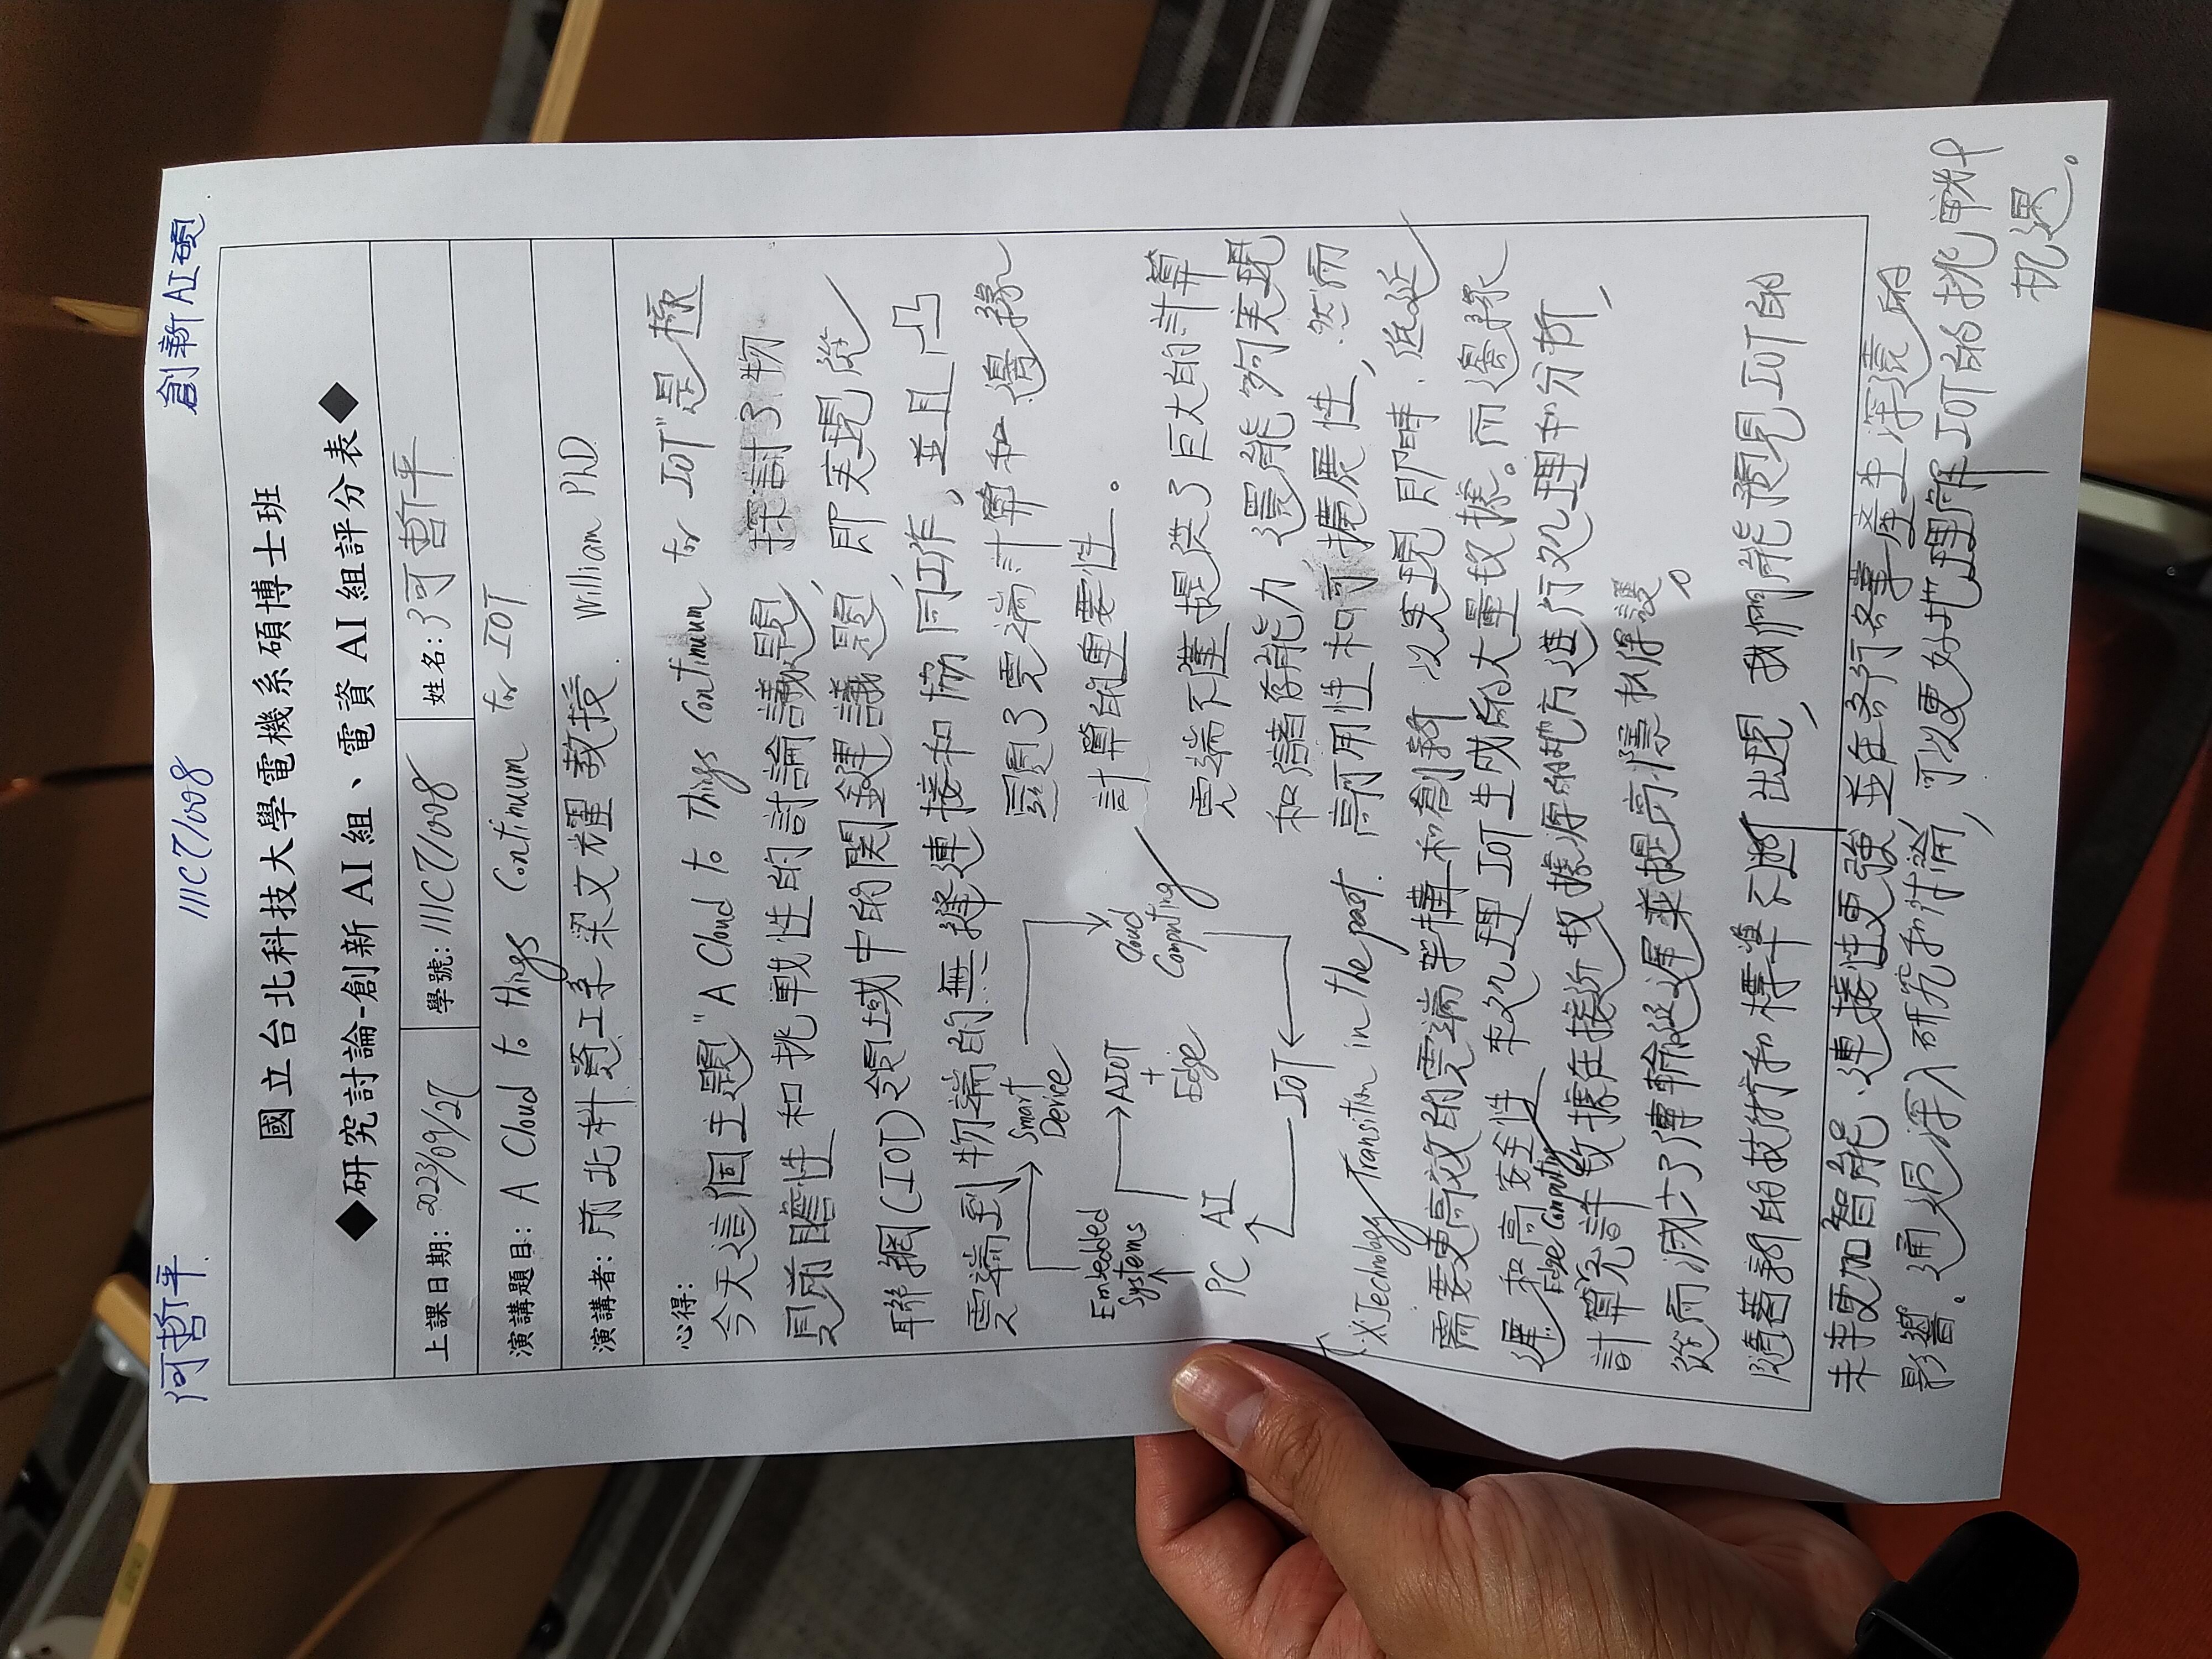 何哲平. 111C71008 創新AI碩.
國立台北科技大學電機系碩博士班
◆研究討論-創新 AI 組、電資 AI 組評分表◆
上課日期: 2023/09/27 學號: 111C71008 姓名: 何哲平
演講題目: A Cloud to things Continuum for IOT
演講者: 前北科資工系梁文耀教授. William PhD.
心得:
今天這個主題 "A Cloud to Things Continuum for IOT" 是極
具前瞻性和挑戰性的討論議題, 探討了物
聯網(IOT)領域中的関鍵議題, 即实現從
雲端到物端的無縫連接和協同工作, 並且凸
顯了雲端計算和邊緣
計算的重要性。
Smart
Device
Embedded
Systems
AIOT
+
Edge
Cloud
Computing
PC
AI
IOT
※Technology Transition in the past.
雲端不僅提供了巨大的計算
和儲存能力, 還能夠实現
高可用性和可擴展性, 然而
需要更高效的雲端架構和創新 以实現即時、低延
遲 和高安全性 來处理 IOT生成的大量数據。而邊緣
Edge Computing
計算允許数據在接近数據源的地方進行处理和分析,
從而減少了傳輸延遲並提高隱私保護。
隨著新的技術和標準不斷出現, 我們能預見IOT的
未來更加智能、連接性更強, 並在各行各業產生深遠的
影響。通過深入研究和討論, 可以更好地理解IOT的挑戰
机遇。